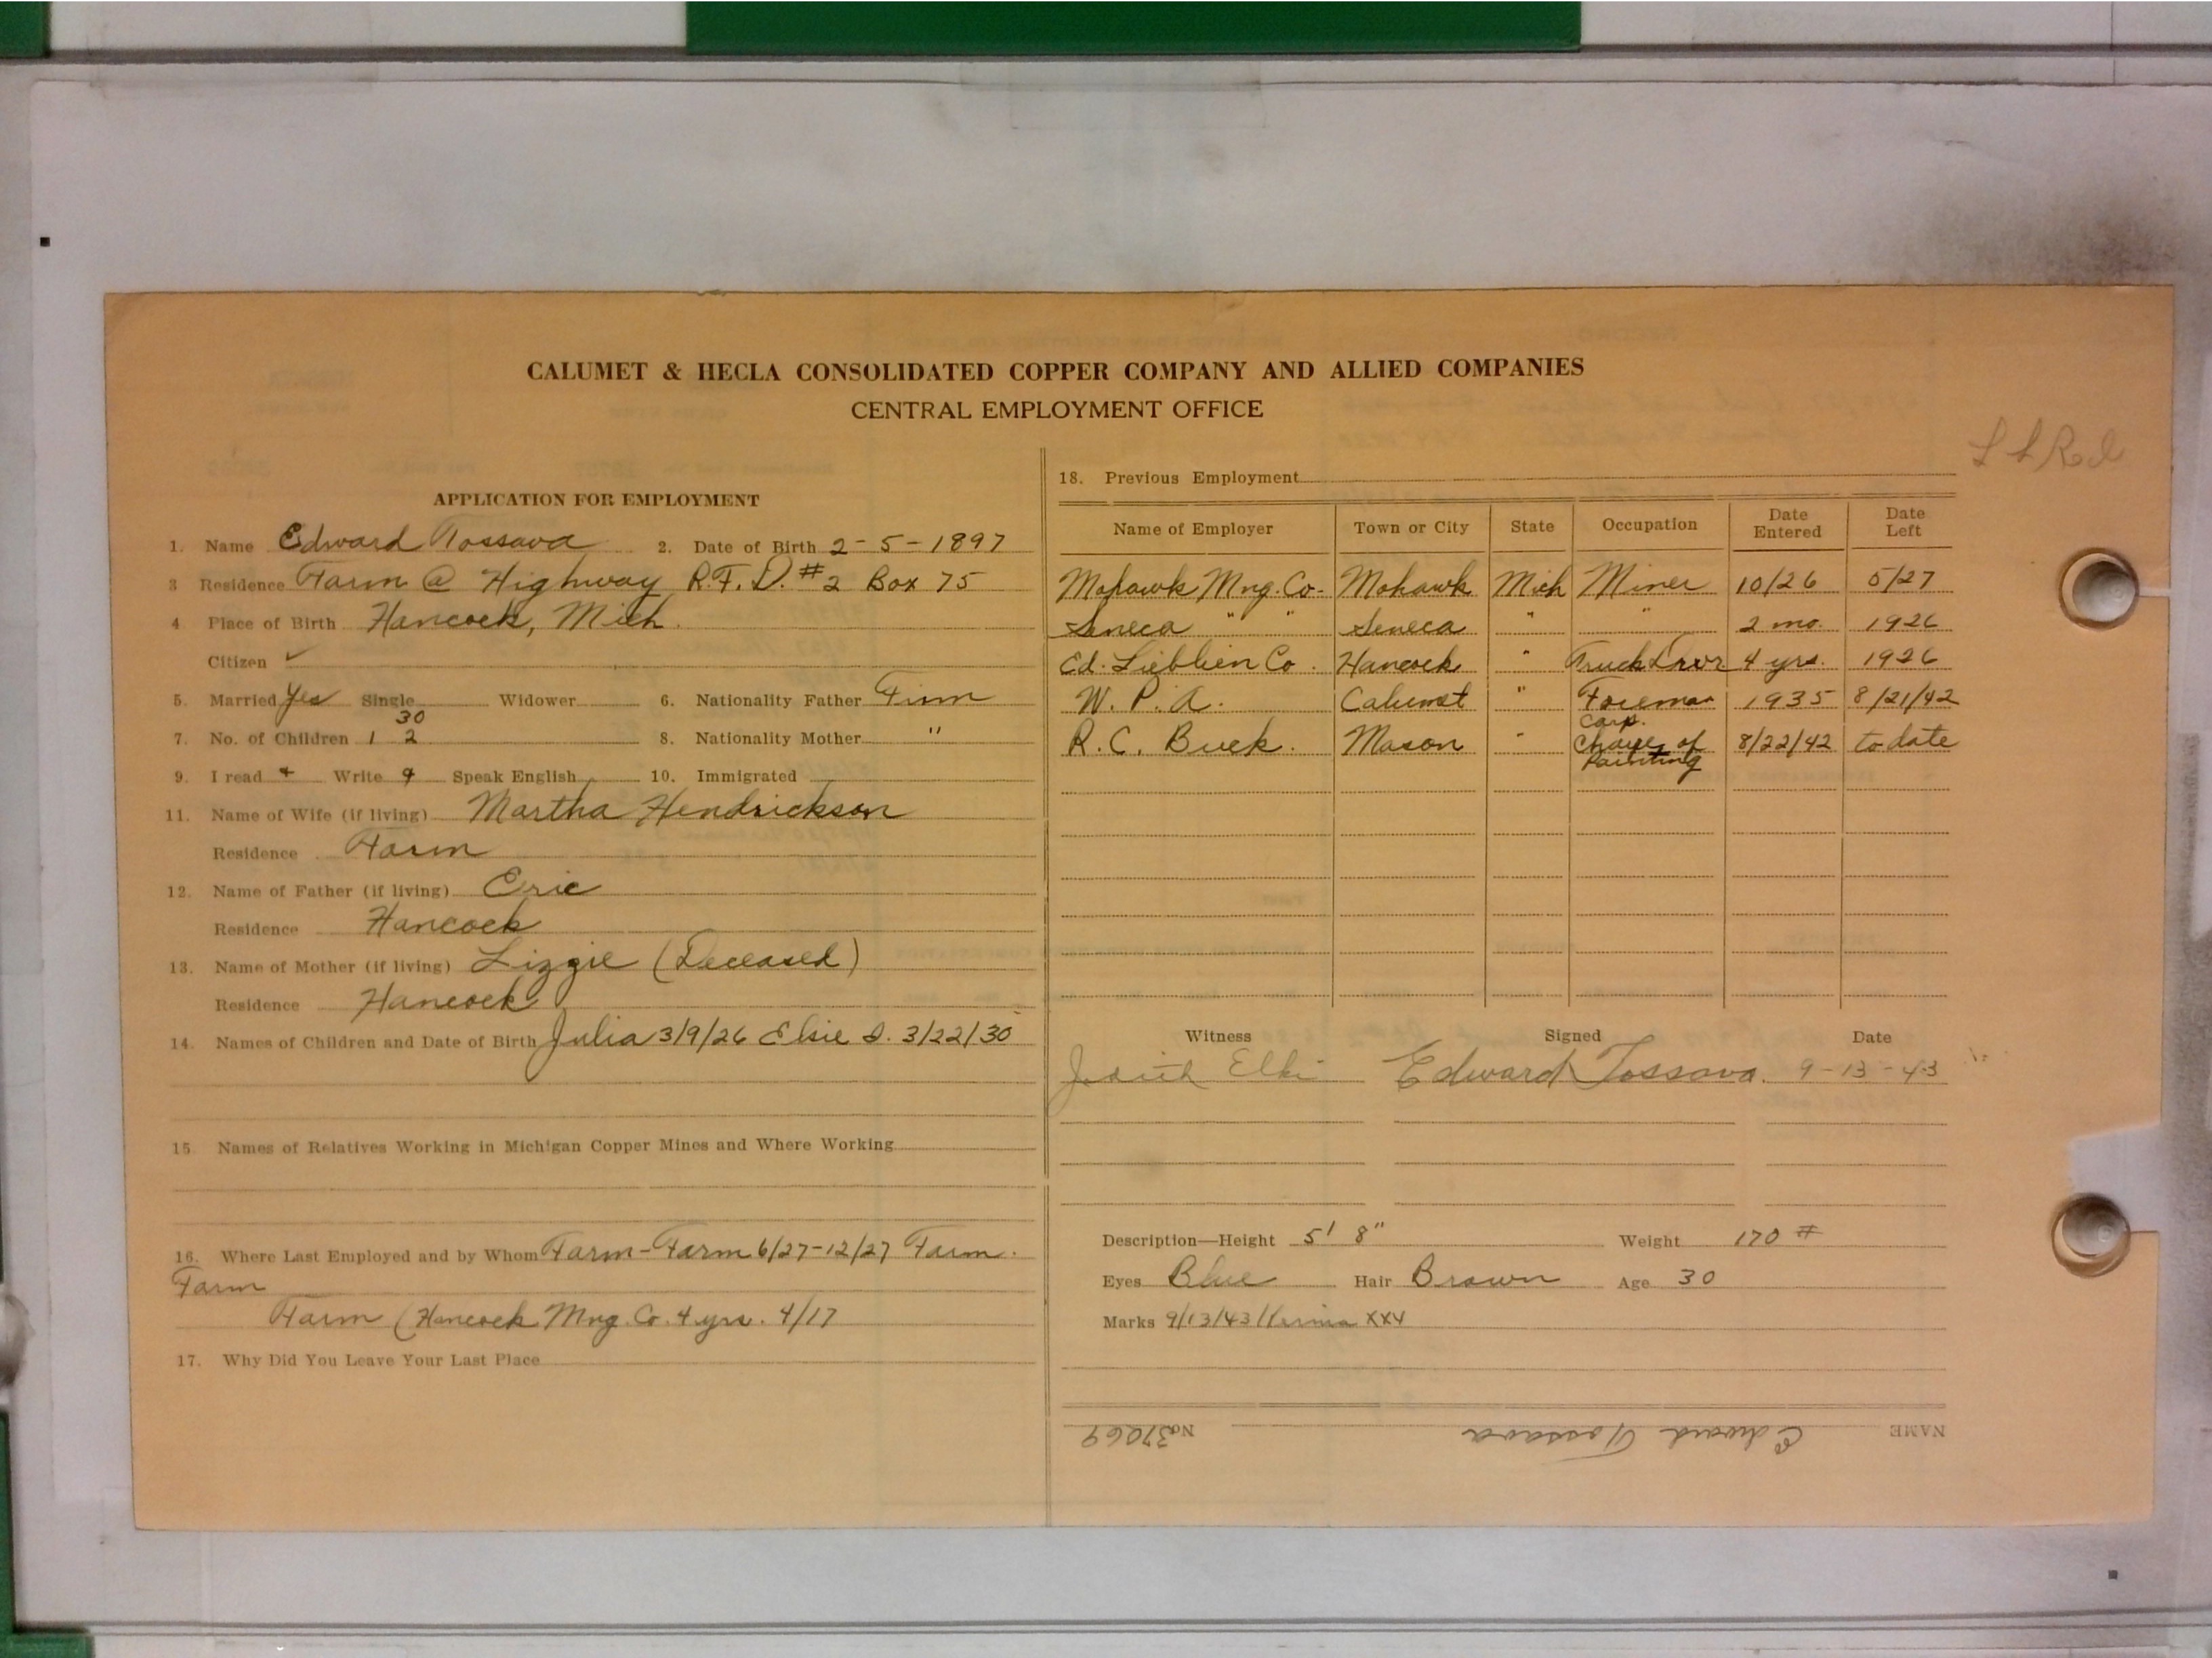 CALUMET & HECLA CONSOLIDATED COPPER COMPANY AND ALLIED COMPANIES
CENTRAL EMPLOYMENT OFFICE
APPLICATION FOR EMPLOYMENT
1. Name Edward Tossava 2. Date of Birth 2-5-1897
3 Residence Farm @ Highway R.F.D. #2 Box 75
4. Place of Birth Hancock, Mich.
Citizen ✓
5. Married Yes Single Widower 6. Nationality Father Finn
30
7. No. of Children 1 2 8. Nationality Mother "
9. I read Write Speak English 10. Immigrated
11. Name of Wife (if living) Martha Hendrickson
Residence Farm
12. Name of Father (if living) Eric
Residence Hancock
13. Name of Mother (if living) Lizzie (Deceased)
Residence Hancock
14. Names of Children and Date of Birth Julia 3/9/26 Elsie S. 3/22/30
15. Names of Relatives Working in Michigan Copper Mines and Where Working
16. Where Last Employed and by Whom Farm-Farm 6/27-12/27 Farm.
Farm
Farm (Hancock Mng. Co. 4 yrs. 4/17
17. Why Did You Leave Your Last Place
18. Previous Employment
Name of Employer Town or City State Occupation Date Entered Date Left
Mohawk Mng. Co. Mohawk Mich Miner 10/26 5/27
Seneca " " Seneca " " 2 mo. 1926
Ed. Lieblein Co. Hancock " Truck Drvr 4 yrs. 1926
W. P. A. Calumet " Foreman 1935 8/21/42
Carp.
R. C. Buck. Mason " Charge of 8/22/42 to date
Painting
Witness Signed Date
Edward Tossava. 9-13-43
Description—Height 5' 8" Weight 170 #
Eyes Blue Hair Brown Age 30
Marks 9/13/43 Hernia XXX
NAME Edward Tossava No. 37069